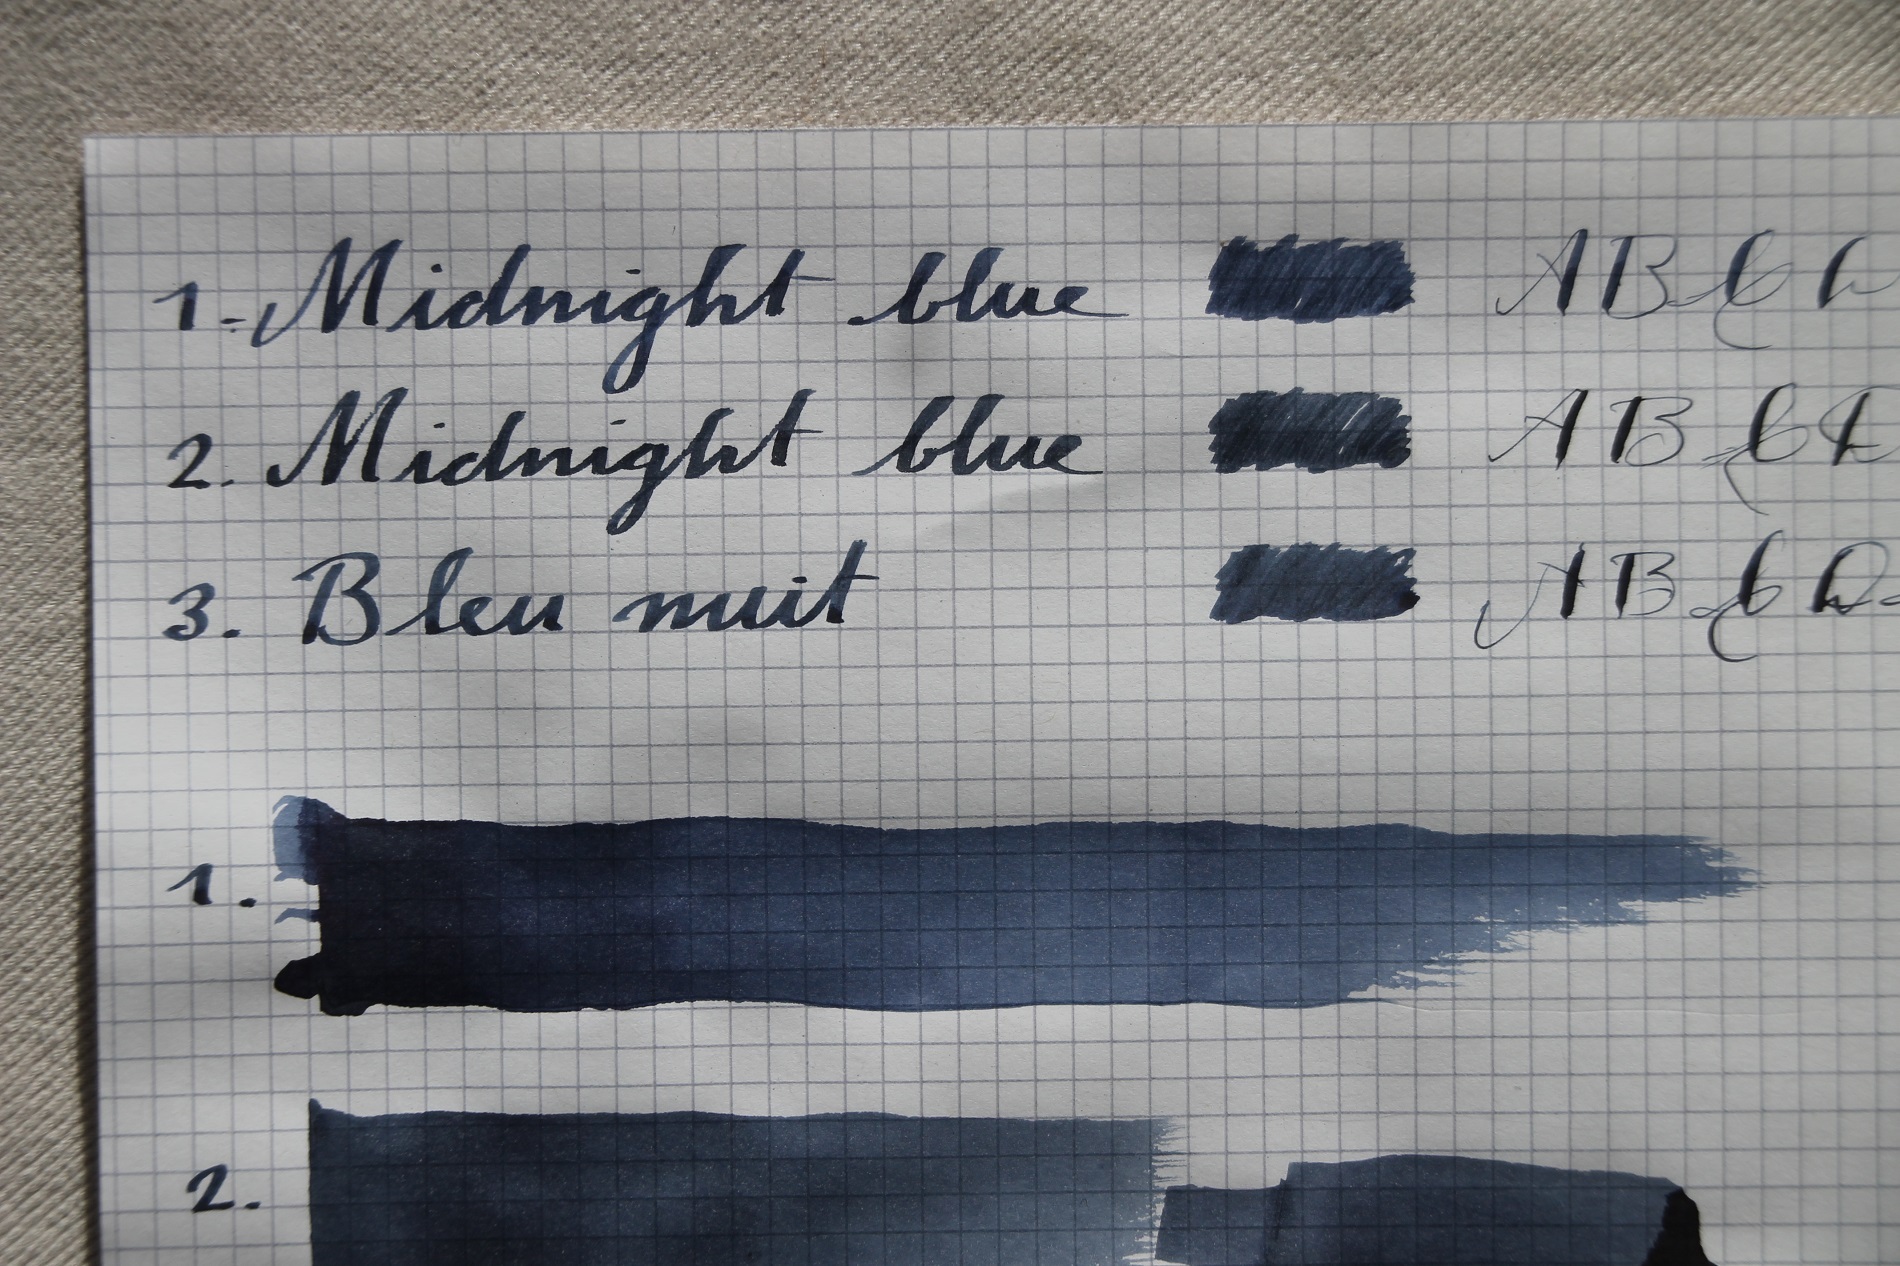 1. Midnight blue A B C D
2. Midnight blue A B C D
3. Bleu nuit A B C D
1.
2.